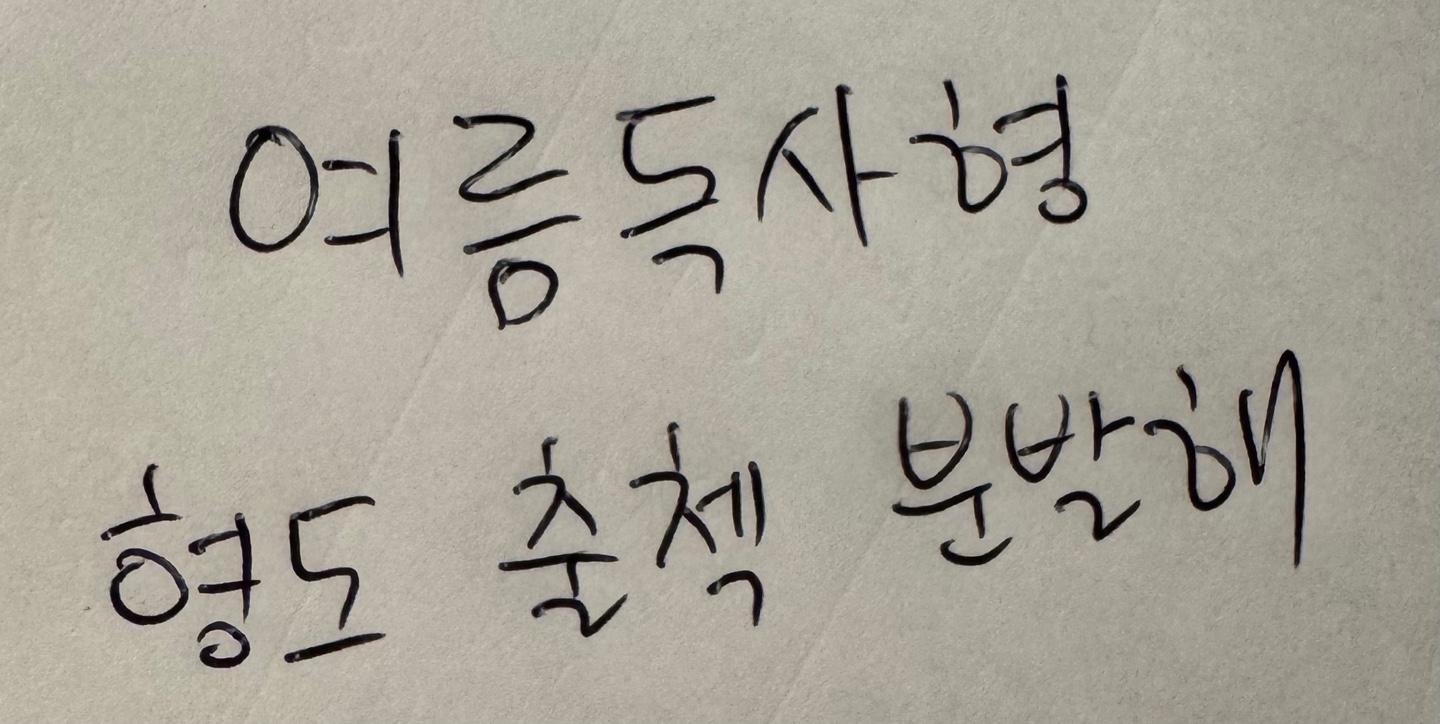 여릉득사형
형도 출첵 분발해